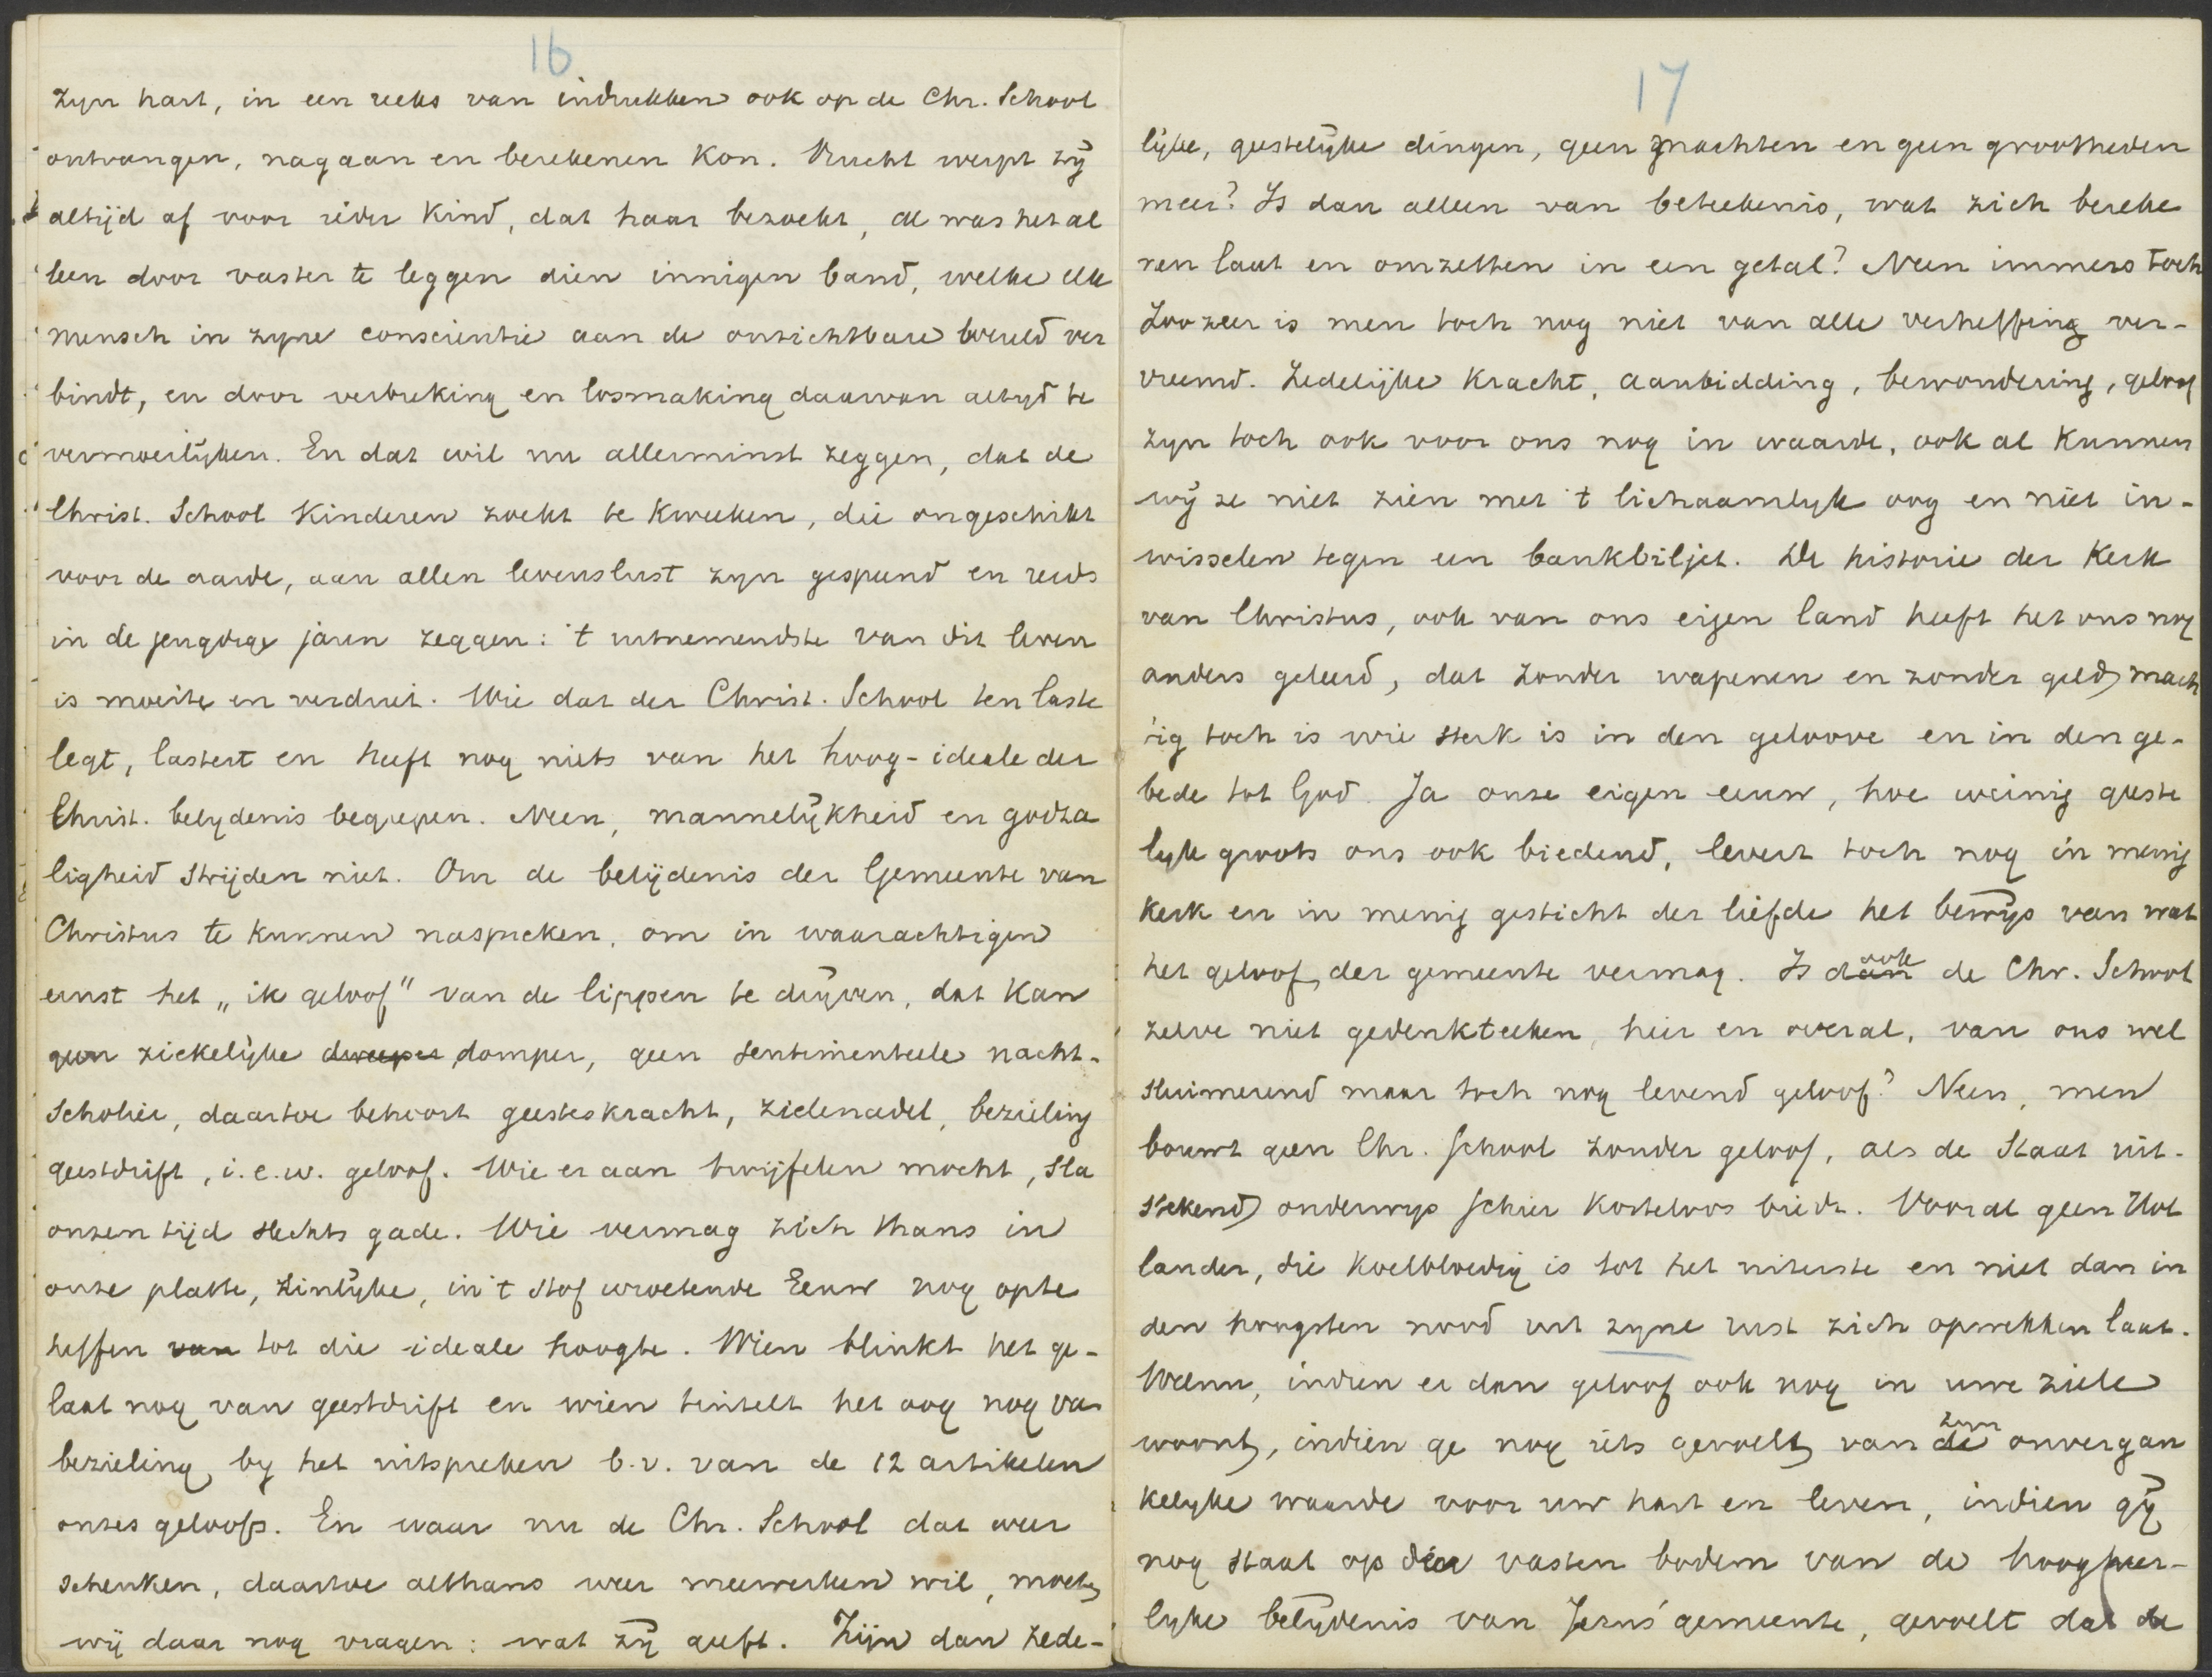 16
zyn hart, in een reeks van indrukken ook op de Chr. School
ontvangen, nagaan en berekenen kon. Vrucht werpt zÿ
altijd af voor ieder kind, dat haar bezoekt, al was het al
leen door vaster te leggen dien innigen band, welke elk
mensch in zyne conscientie aan de onzichtbare wereld ver
bindt, en door verbreking en losmaking daarvan altyd te
vermoeilÿken. En dat wil nu allerminst zeggen, dat de
Christ. School kinderen zoekt te kweeken, die ongeschikt
voor de aarde, aan allen levenslust zyn gespeend en reeds
in de jeugdige jaren zeggen: 't uitnemendste van dit leven
is moeite en verdriet. Wie dat der Christ. School ten laste
legt, lastert en heeft nog niets van het hoog-ideale der
Christ. belydenis begrepen. Neen, mannelÿkheid en godza
ligheid strijden niet. Om de belijdenis der Gemeente van
Christus te kunnen naspreken, om in waarachtigen
ernst het „ik geloof" van de lippen te doen drÿven, dat kan
geen ziekelÿke dweeper domper, geen sentimenteele nacht-
scholier, daartoe behoort geesteskracht, zielenadel, bezieling
geestdrift, i.e.w. geloof. Wie er aan twijfelen mocht, sla
onzen tijd slechts gade. Wie vermag zich thans in
onze platte, zinlÿke, in 't stof wroetende Eeuw nog opte
heffen van tot die ideale hoogte. Wien blinkt het ge-
laat nog van geestdrift en wien tintelt het oog nog van
bezieling by het uitspreken b.v. van de 12 artikelen
onzes geloofs. En waar nu de Chr. School dat weer
schenken, daartoe althans weer meewerken wil, moeten
wij daar nog vragen: wat zÿ geeft. Zijn dan zede-
17
lijke, geestelÿke dingen, geen machten en geen grootheden
meer? Is dan alleen van beteekenis, wat zich bereke
nen laat en omzetten in een getal? Neen immers toch
Zoozeer is men toch nog niet van alle verheffing ver-
vreemd. Zedelijke kracht, aanbidding, bewondering, geloof
zyn toch ook voor ons nog in waarde, ook al kunnen
wÿ ze niet zien met 't lichaamlyk oog en niet in-
wisselen tegen een bankbiljet. De historie der Kerk
van Christus, ook van ons eigen land heeft het ons nog
anders geleerd, dat zonder wapenen en zonder geld mach
tig toch is wie sterk is in den geloove en in den ge-
bede tot God. Ja onze eigen eeuw, hoe weinig geeste
lyk groots ons ook biedend, levert toch nog in menig
kerk en in menig gesticht der liefde het bewÿs van wat
het geloof der gemeente vermag. Is dan ook de Chr. School
zelve niet gedenkteeken, hier en overal, van ons wel
sluimerend maar toch nog levend geloof? Neen, men
bouwt geen Chr. School zonder geloof, als de Staat uit-
stekend onderwys schier kosteloos biedt. Vooral geen Hol
lander, die koelbloedig is tot het uiterste en niet dan in
den hoogsten nood uit zyne rust zich opwekken laat.
Welnu, indien er dan geloof ook nog in uwe ziele
woont, indien ge nog iets gevoelt van de zyn onvergan
kelyke waarde voor uw hart en leven, indien gÿ
nog staat op dien vasten bodem van de hoogheer-
lyke belÿdenis van Jezus' gemeente, gevoelt dat de